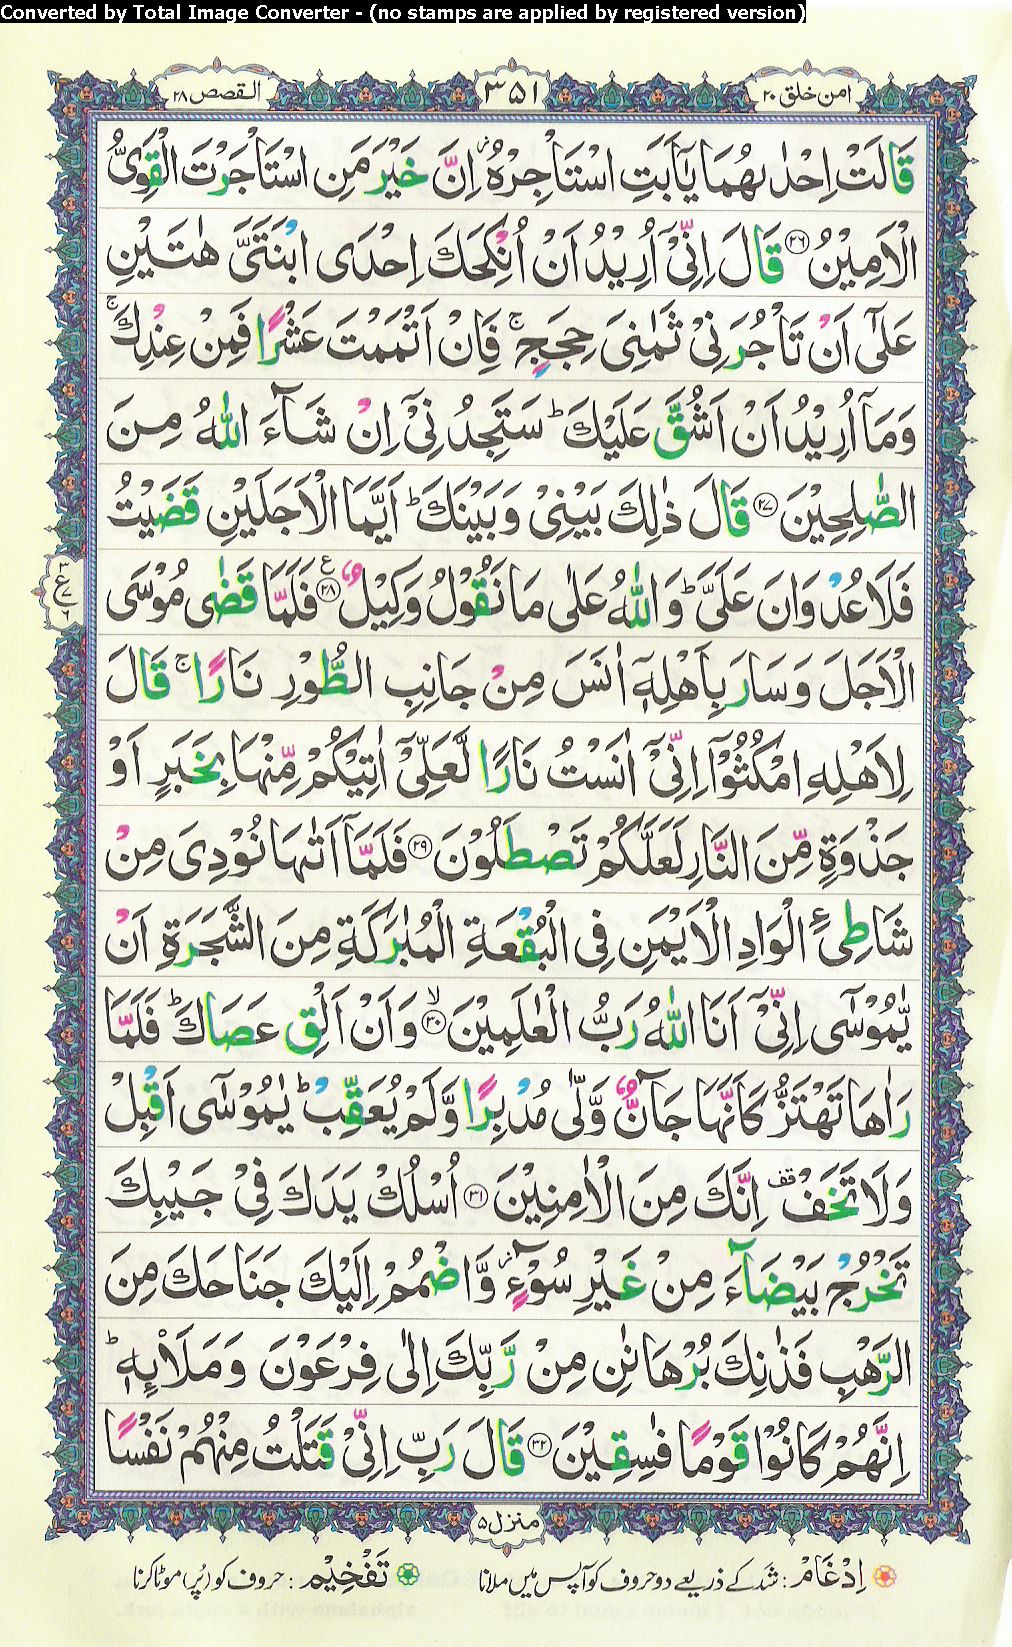 Converted by Total Image Converter - (no stamps are applied by registered version)
امن خلق ۲۰
۳۵۱
القصص ۲۸
قَالَتْ اِحْدٰىهُمَا يٰۤاَبَتِ اسْتَاْجِرْهُ ؗ اِنَّ خَيْرَ مَنِ اسْتَاْجَرْتَ الْقَوِىُّ
الْاَمِيْنُ ﴿۲۶﴾ قَالَ اِنِّىْۤ اُرِيْدُ اَنْ اُنْكِحَكَ اِحْدَى ابْنَتَىَّ هٰتَيْنِ
عَلٰٓى اَنْ تَاْجُرَنِىْ ثَمٰنِىَ حِجَجٍ ۚ فَاِنْ اَتْمَمْتَ عَشْرًا فَمِنْ عِنْدِكَ ۚ
وَمَاۤ اُرِيْدُ اَنْ اَشُقَّ عَلَيْكَ ؕ سَتَجِدُنِىْۤ اِنْ شَآءَ اللّٰهُ مِنَ
الصّٰلِحِيْنَ ﴿۲۷﴾ قَالَ ذٰلِكَ بَيْنِىْ وَبَيْنَكَ ؕ اَيَّمَا الْاَجَلَيْنِ قَضَيْتُ
فَلَا عُدْوَانَ عَلَىَّ ؕ وَاللّٰهُ عَلٰى مَا نَقُوْلُ وَكِيْلٌ ﴿۲۸﴾ ع فَلَمَّا قَضٰى مُوْسَى
۳
ع ۷
۶
الْاَجَلَ وَسَارَ بِاَهْلِهٖۤ اٰنَسَ مِنْ جَانِبِ الطُّوْرِ نَارًا ۚ قَالَ
لِاَهْلِهِ امْكُثُوْۤا اِنِّىْۤ اٰنَسْتُ نَارًا لَّعَلِّىْۤ اٰتِيْكُمْ مِّنْهَا بِخَبَرٍ اَوْ
جَذْوَةٍ مِّنَ النَّارِ لَعَلَّكُمْ تَصْطَلُوْنَ ﴿۲۹﴾ فَلَمَّاۤ اَتٰىهَا نُوْدِىَ مِنْ
شَاطِئِ الْوَادِ الْاَيْمَنِ فِى الْبُقْعَةِ الْمُبٰرَكَةِ مِنَ الشَّجَرَةِ اَنْ
يّٰمُوْسٰۤى اِنِّىْۤ اَنَا اللّٰهُ رَبُّ الْعٰلَمِيْنَ ﴿۳۰﴾ ۙ وَاَنْ اَلْقِ عَصَاكَ ؕ فَلَمَّا
رَاٰهَا تَهْتَزُّ كَاَنَّهَا جَآنٌّ وَّلّٰى مُدْبِرًا وَّلَمْ يُعَقِّبْ ؕ يٰمُوْسٰۤى اَقْبِلْ
وَلَا تَخَفْ قف اِنَّكَ مِنَ الْاٰمِنِيْنَ ﴿۳۱﴾ اُسْلُكْ يَدَكَ فِىْ جَيْبِكَ
تَخْرُجْ بَيْضَآءَ مِنْ غَيْرِ سُوْٓءٍ ؗ وَّاضْمُمْ اِلَيْكَ جَنَاحَكَ مِنَ
الرَّهْبِ فَذٰنِكَ بُرْهَانٰنِ مِنْ رَّبِّكَ اِلٰى فِرْعَوْنَ وَمَلَا۟ئِهٖ ؕ
اِنَّهُمْ كَانُوْا قَوْمًا فٰسِقِيْنَ ﴿۳۲﴾ قَالَ رَبِّ اِنِّىْ قَتَلْتُ مِنْهُمْ نَفْسًا
منزل ۵
اِدْغَامْ : شد کے ذریعے دو حروف کو آپس میں ملانا
تَفْخِيْم : حروف کو (پُر) موٹا کرنا